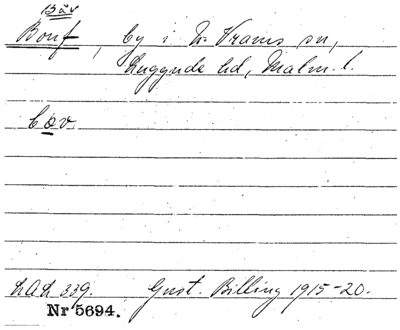 Båv
Bonf, by i N. Vrams sn,
Luggude hd, Malm. l.
bov
LAL 339. Gust. Billing 1915-20.
Nr 5694.